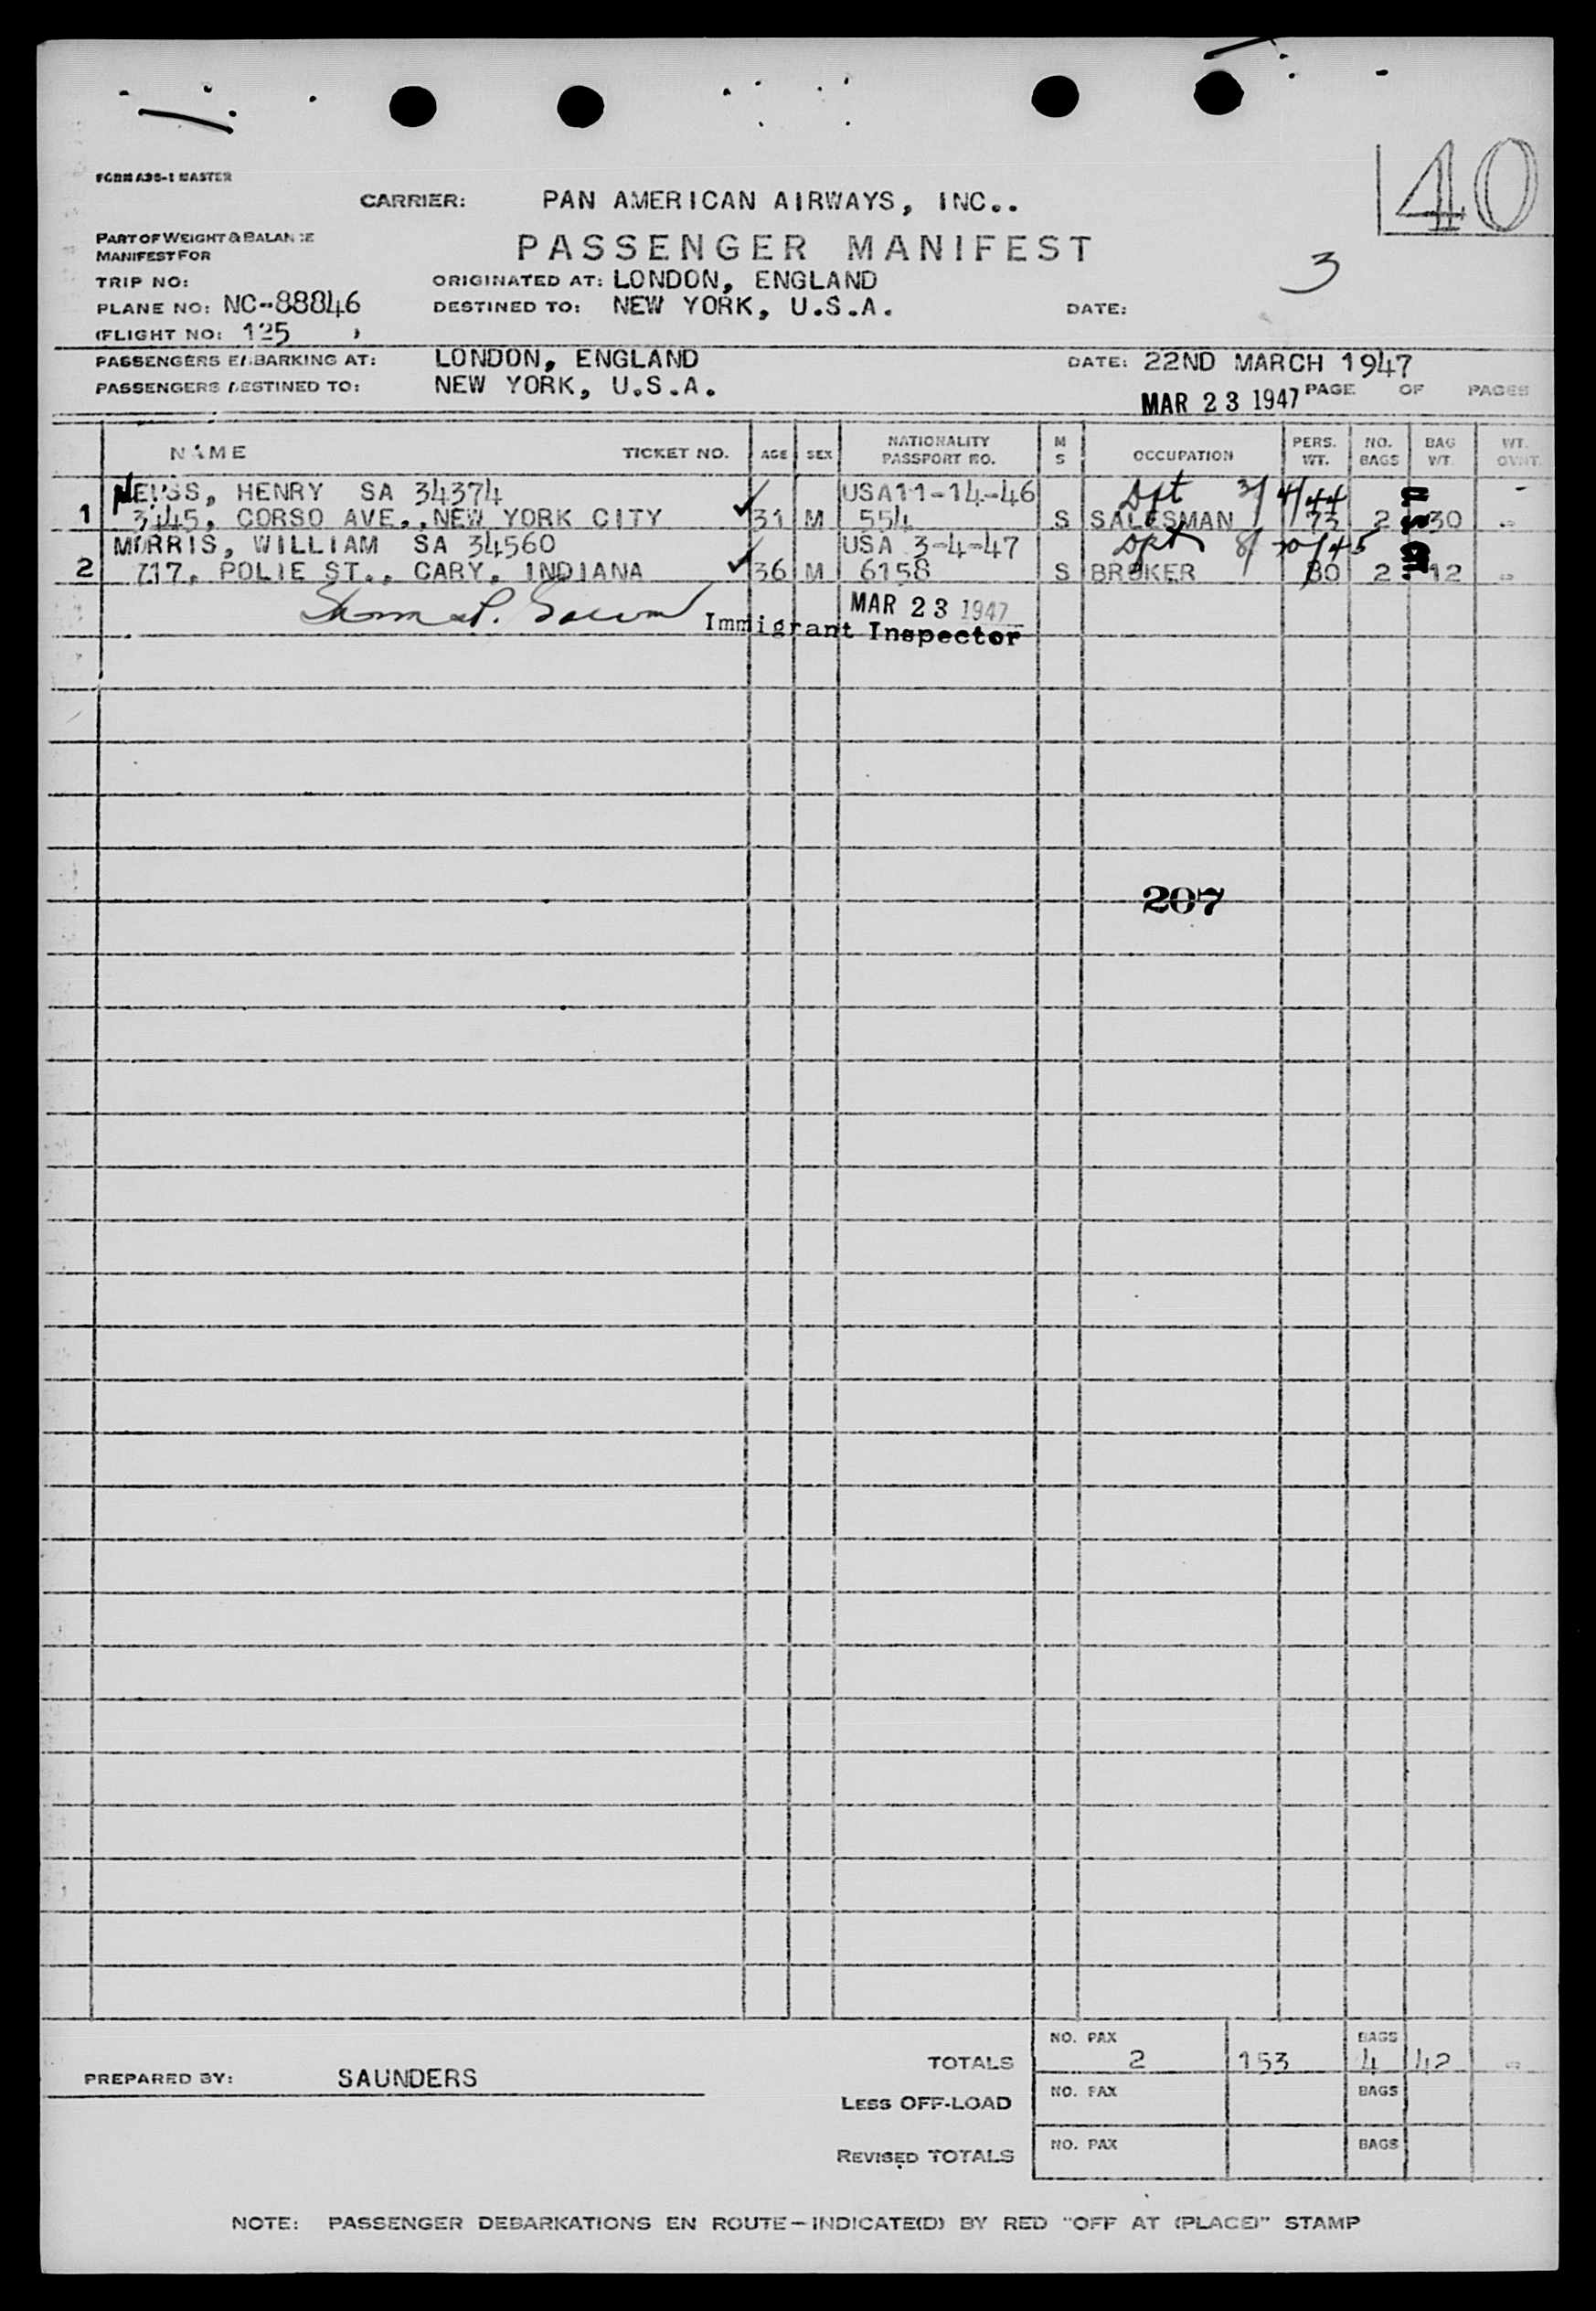 40
FORM A36-1 MASTER
CARRIER: PAN AMERICAN AIRWAYS, INC..
PART OF WEIGHT & BALANCE
MANIFEST FOR
PASSENGER MANIFEST
3
TRIP NO:
ORIGINATED AT: LONDON, ENGLAND
PLANE NO: NC-88846
DESTINED TO: NEW YORK, U.S.A.
DATE:
(FLIGHT NO: 125 )
PASSENGERS EMBARKING AT: LONDON, ENGLAND DATE: 22ND MARCH 1947
PASSENGERS DESTINED TO: NEW YORK, U.S.A. MAR 23 1947 PAGE OF PAGES
NAME TICKET NO. AGE SEX NATIONALITY PASSPORT NO. M S OCCUPATION PERS. WT. NO. BAGS BAG WT. WT. OVNT.
HENRY SA 34374 USA 11-14-46 Dpt 3/4/44 -
1 3445, CORSO AVE., NEW YORK CITY ✓ 31 M 554 S SALESMAN 73 2 30 -
MORRIS, WILLIAM SA 34560 USA 3-4-47 Dpt 8/30/45
2 717, POLIE ST., CARY, INDIANA ✓ 36 M 6158 S BROKER 80 2 12 -
MAR 23 1947
Immigrant Inspector
207
NO. PAX BAGS
TOTALS 2 153 4 42 -
PREPARED BY: SAUNDERS
NO. PAX BAGS
LESS OFF-LOAD
NO. PAX BAGS
REVISED TOTALS
NOTE: PASSENGER DEBARKATIONS EN ROUTE - INDICATE(D) BY RED "OFF AT (PLACE)" STAMP